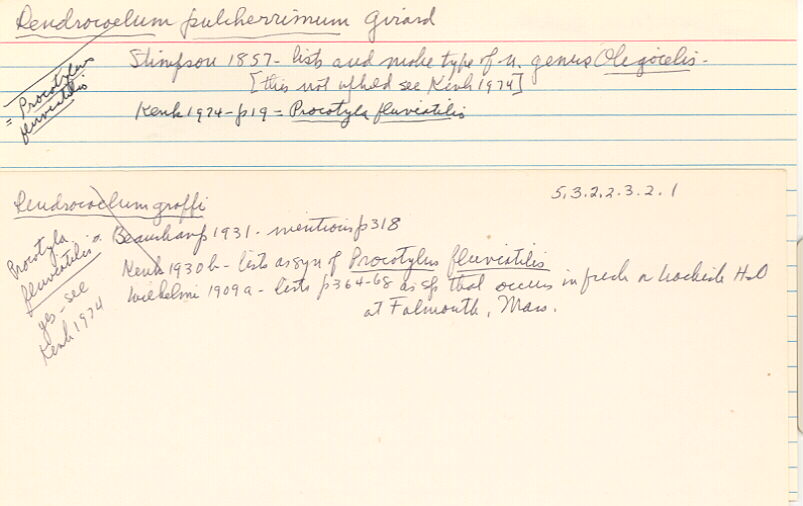 Dendrocoelum pulcherrimum Girard
Stimpson 1857 - lists and make type of n. genus Oligocelis -
[this not upheld see Kenk 1974]
= Procotylus
fluviatilis
Kenk 1974 - p19 = Procotyla fluviatilis
5.3.2.2.3.2.1
Dendrocoelum graffi
Beauchamp 1931 - mentions p318
Kenk 1930b - lists as syn of Procotylus fluviatilis
Wilhelmi 1909a - lists p364-68 as sp that occurs in fresh or brackish H2O
at Falmouth, Mass.
Procotyla
fluviatilis
yes - see
Kenk 1974